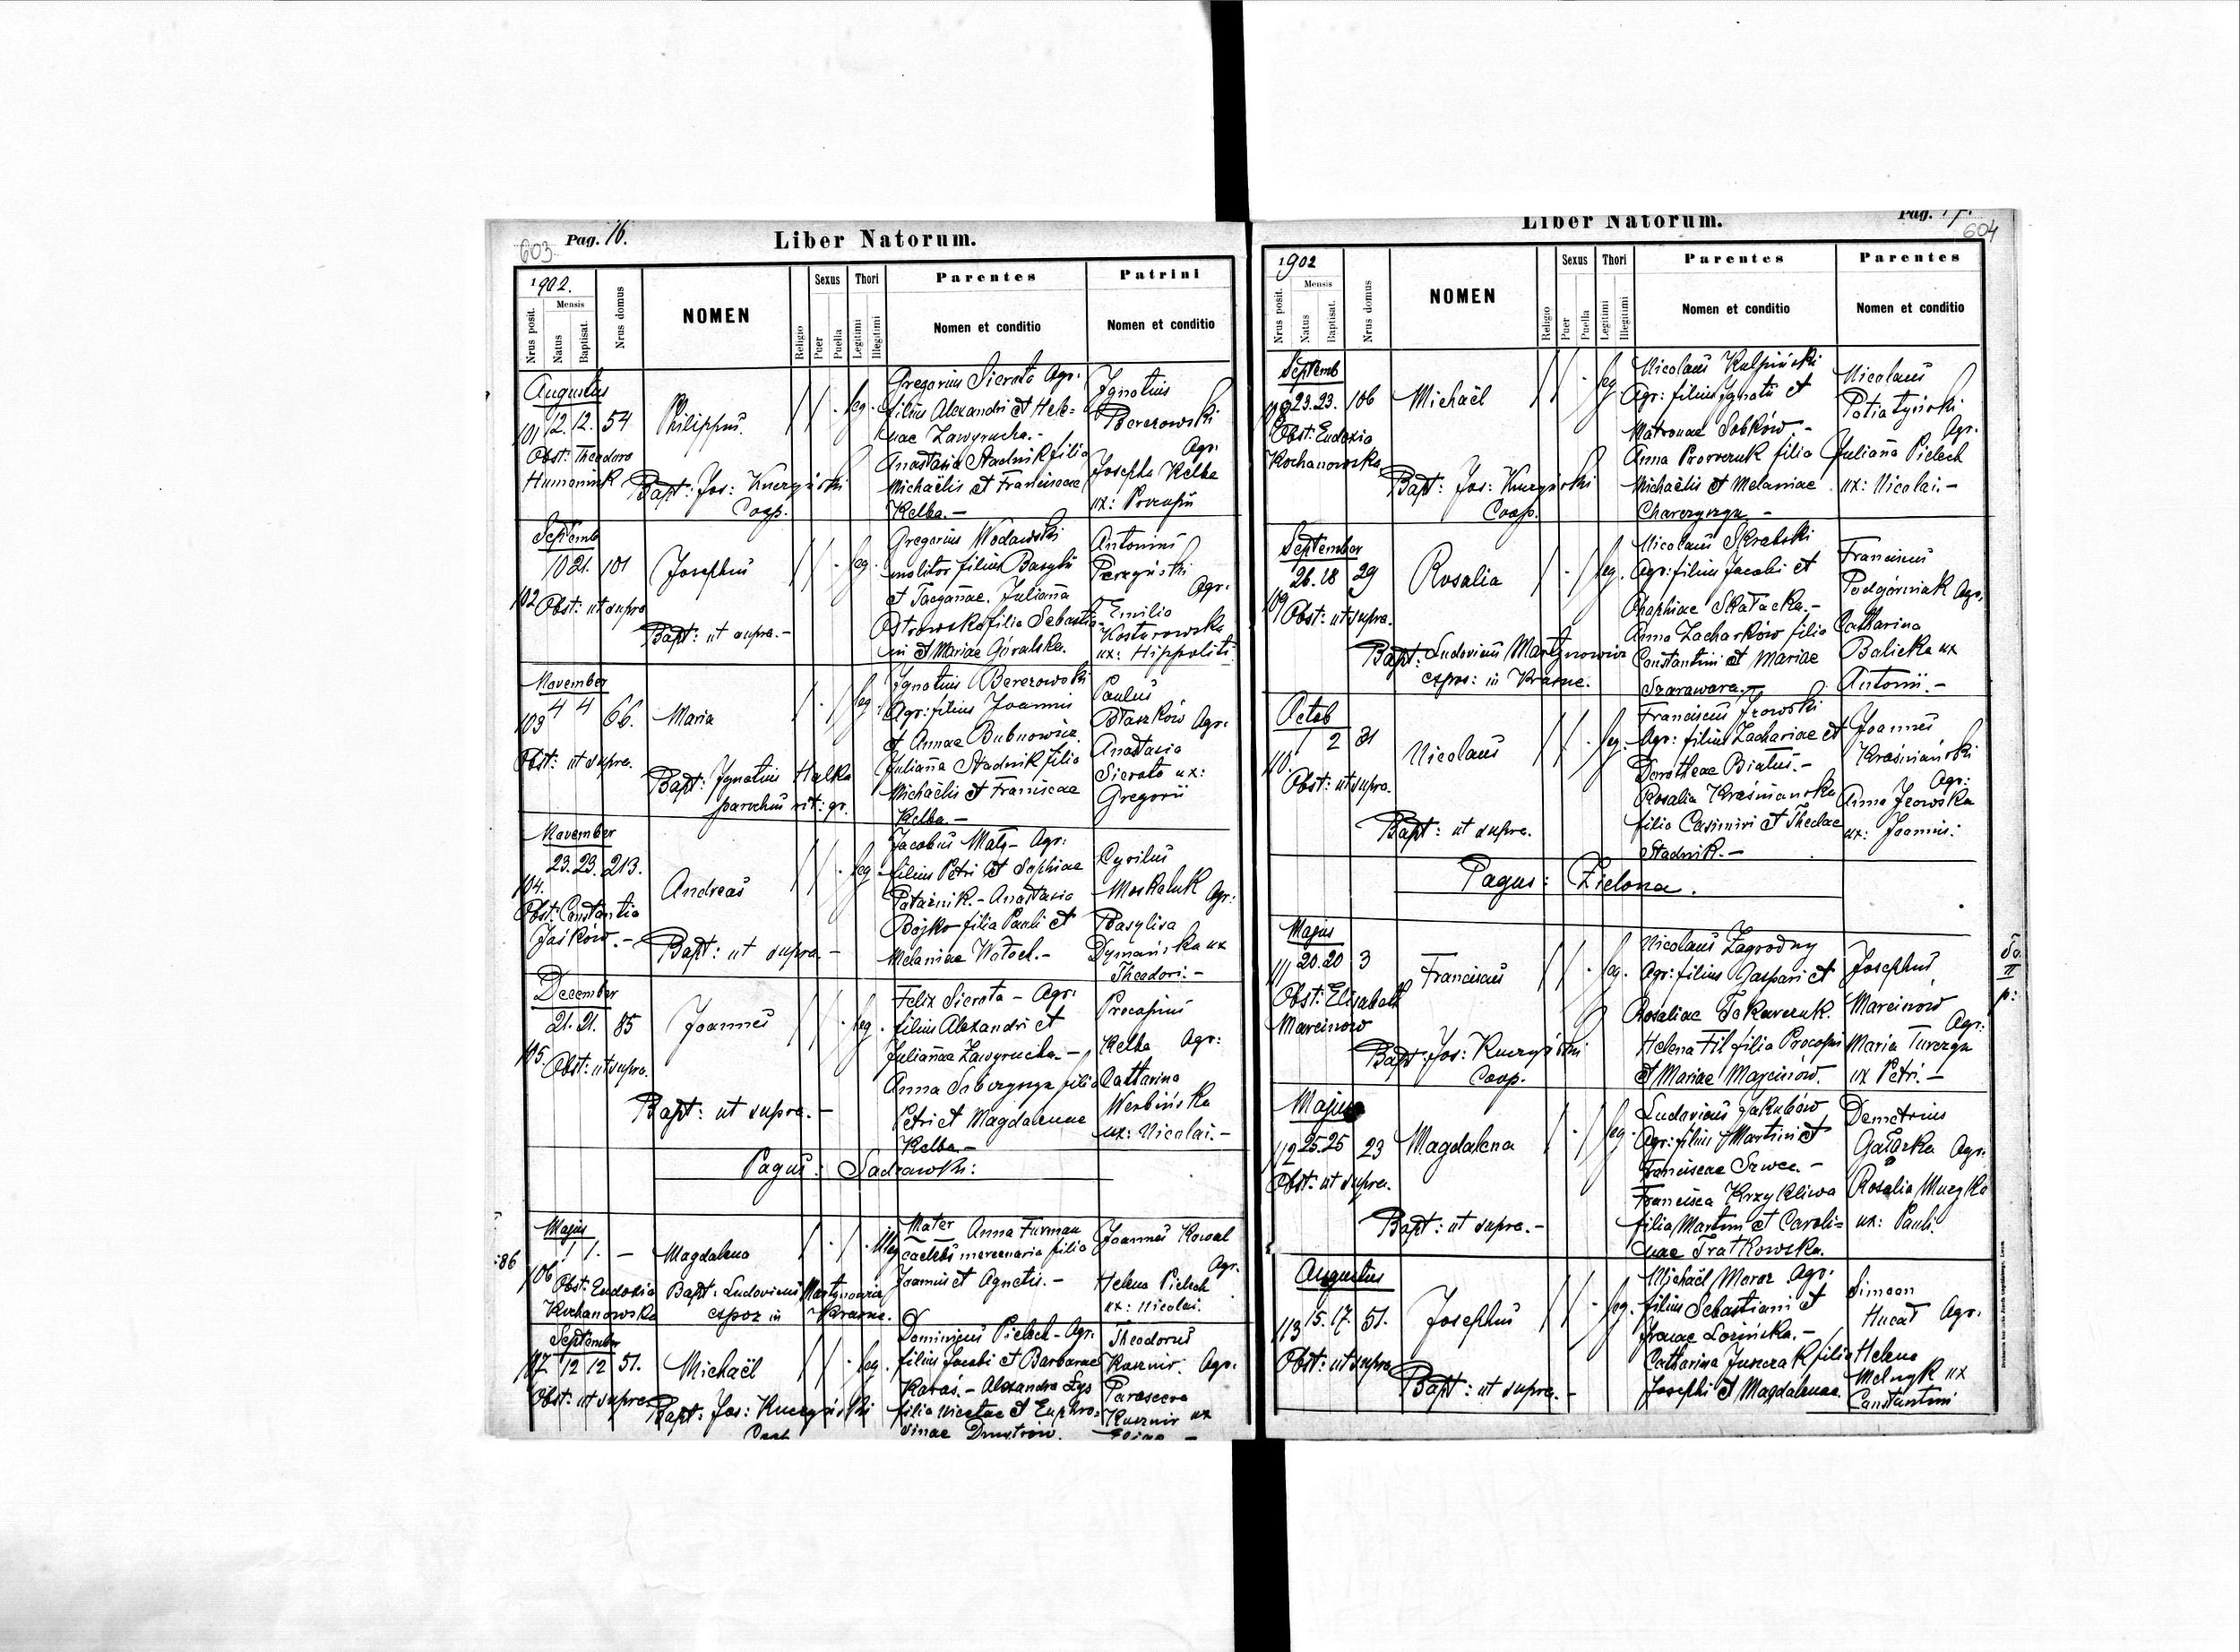 603 Pag. 16. Liber Natorum.
1902.
Nrus posit.
Mensis
Natus
Baptisat.
Nrus domus
NOMEN
Religio
Sexus
Puer
Puella
Thori
Legitimi
Illegitimi
Parentes
Nomen et conditio
Patrini
Nomen et conditio
Augustus
101 12. 12. 54
Obst: Theodora
Humeniuk
Philippus.
Bapt: Jos: Kuczyński
Coop.
leg.
Gregorius Sierota Agr:
filius Alexandri et Hele=
nae Zawyrucha.-
Anastasia Stadnik filia
Michaëlis et Franciscae
Kelba.-
Ignatius
Berezowski
Agr:
Josepha Kelba
ux: Procopii
Septemb
102 10 21. 101
Obst: ut supra
Josephus
Bapt: ut supra.-
leg.
Gregorius Wodawski
molitor filius Basylii
et Tacyannae. Julianna
Ostrowska filia Sebastia-
ni et Mariae Góralska.
Antonius
Perzyński
Agr.
Emilia
Kosturowska
ux: Hippoliti
November
103 4 4 66.
Obst: ut supra.
Maria
Bapt: Ignatius Halka
parochus rit: gr.
leg.
Ignatius Berezowski
Agr: filius Joannis
et Annae Bubnowicz.
Julianna Stadnik filia
Michaëlis et Franciscae
Kelba.-
Paulus
Błaszków Agr.
Anastasia
Sierota ux:
Gregorii
November
104. 23. 23. 213.
Obst: Constantia
Jaśków.-
Andreas
Bapt: ut supra.-
leg.
Jacobus Mały- Agr:
filius Petri et Sophiae
Anastasia
Bojko filia Pauli et
Melaniae Wołoch.-
Cyrilus
Moskaluk Agr:
Basylisa
ux
Theodori.-
December
105. 21. 21. 85
Obst: ut supra.
Joannes
Bapt: ut supra.-
leg.
Felix Sierota - Agr:
filius Alexandri et
Juliannae Zawyrucha.-
Anna filia
Petri et Magdalenae
Kelba.-
Procopius
Kelba Agr:
Catharina
Werbińska
ux: Nicolai.-
Pagus: Sadzawki:
Majus
86
106 1. 1. -
Obst: Eudoxia
Kochanowska
Magdalena
Bapt: Ludovicus Martynowicz
expoz in Krasne.
illeg
Mater Anna Furman
caelebs mercenaria filia
Joannis et Agnetis.-
Joannes Kowal
Agr.
Helena Pielech
ux: Nicolai.
September
107 12 12 51.
Obst: ut supra
Michaël
Bapt: Jos: Kuczyński
leg.
Dominicus Pielech- Agr.
filius Jacobi et Barbarae
Karaś.- Alexandra Lys
filia Nicetae et Euphro=
sinae Dmytrów.
Theodorus
Kusznir. Agr.
Parasceva
Kusznir ux
Liber Natorum. Pag. 17.
604
1902
Nrus posit.
Mensis
Natus
Baptisat.
Nrus domus
NOMEN
Religio
Sexus
Puer
Puella
Thori
Legitimi
Illegitimi
Parentes
Nomen et conditio
Parentes
Nomen et conditio
Septemb
108 23. 23. 106
Obst: Eudoxia
Kochanowska
Michaël
Bapt: Jos: Kuczyński
Coop.
leg
Nicolaus Kulpiński
Agr: filius Ignatii et
Matronae Sobków-
Anna filia
Michaëlis et Melaniae
Nicolaus
Agr.
Julianna Pielech
ux: Nicolai.-
September
109 26. 28 29
Obst: ut supra.
Rosalia
Bapt: Ludovicus Martynowicz
expos: in Krasne.
leg.
Nicolaus Skrabski
Agr: filius Jacobi et
Anna Zacharków filia
Constantini et Mariae
Szarawara.-
Franciscus
Podgórniak Agr.
Catharina
Balicka ux
Antonii.-
Octob
110. 1 2 81
Obst: ut supra.
Nicolaus
Bapt: ut supra.
leg.
Franciscus Jzowski
Agr: filius Zachariae et
Dorotheae Białus.-
Rosalia Kraśniańska
filia Casimiri et Theclae
Stadnik.-
Joannes
Kraśniański
Agr:
Anna Jzowska
ux: Joannis:
Pagus: Zielona.
Majus
111 20. 20 3
Obst: Elisabeth
Marcinow
Franciscus
Bapt: Jos: Kuczyński
Coop.
leg.
Nicolaus Zagrodny
Agr: filius Gaspari et
Rosaliae
Helena Fil filia Procopii
et Mariae Marcinów.
Josephus
Marcinow
Agr:
Maria Turczyn
ux Petri.-
Majus
112 25. 25 23
Obst: ut supra.
Magdalena
Bapt: ut supra.-
leg.
Ludovicus Jakubów
Agr: filius Martini et
Franciscae Szwec.-
Francisca Krzykliwa
filia Martini et Caroli=
nae Fratkowska.
Demetrius
Gałązka Agr.
Rosalia Muzyka
ux: Pauli.
Augustus
113 15. 17. 51.
Obst: ut supra
Josephus
Bapt: ut supra.-
leg.
Michaël Moroz Agr:
filius Sebastiani et
Irenae Lozińska.-
Catharina Juszczak filia
Josephi et Magdalenae.
Simeon
Hucał Agr.
Helena
Melnyk ux
Constantini